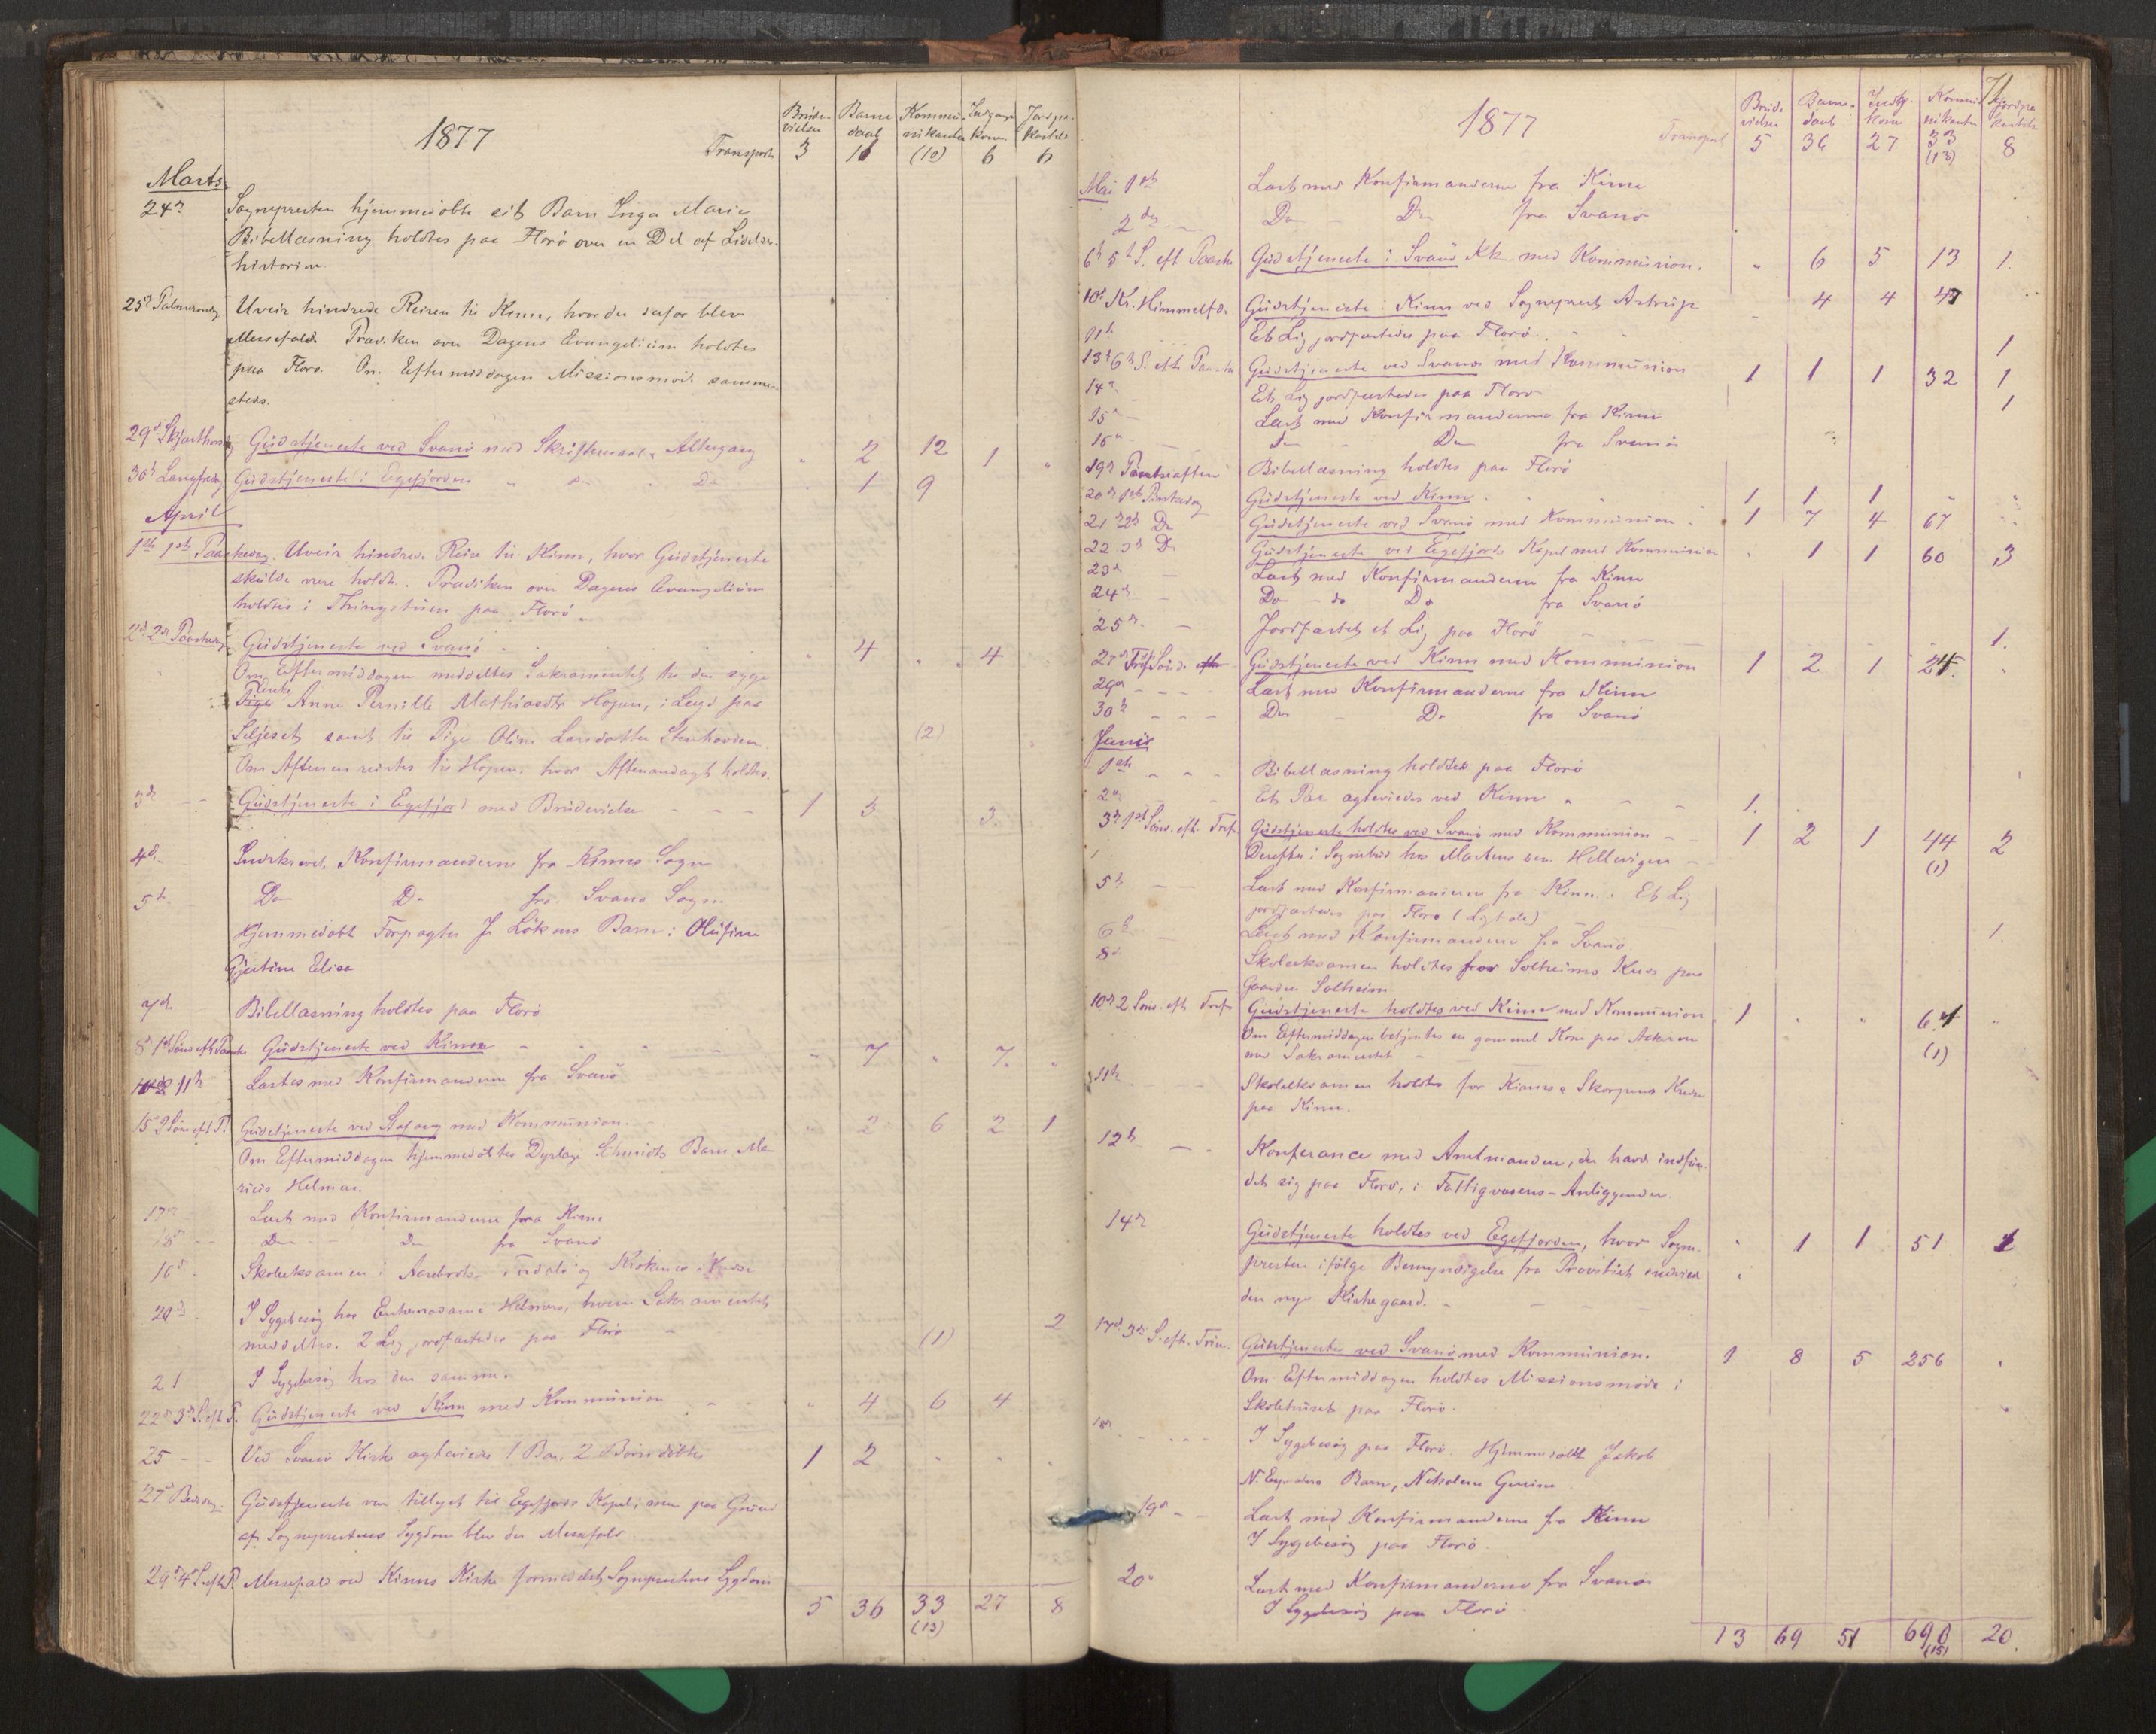 1877
Brude- vielser Barne daab Kommu- nikanter Indgangs koner Jordpa- kastede
Transport 3 11 (10) 6 6
Marts
24de Sognepresten hjemmedöbte eit Barn Inga Marie
Bibellæsning holdtes paa Florö over en Del af Lidelses-
historien.
25de Palmesöndag Uveir hindrede Reisen til Kinn, hvor der derfor blev
Messefald. Prædiken over Dagens Evangelium holdtes
paa Florö. Om Eftermiddagen Missionsmöde samme-
steds.
29de Skjærthorsdag Gudstjeneste ved Svanö med Skriftemaal & Altergang " 2 12 1 "
30te Langfredag Gudstjeneste i Egefjorden " do " Do " 1 9
April
1ste 1ste Paaskedag. Uveir hindred. Reise til Kinn, hvor Gudstjeneste
skulde være holdt. Prædiken over Dagens Evangelium
holdtes i Thingstuen paa Florö.
2den 2den Paaskedag Gudstjeneste ved Svanö " 4 " 4
Om Eftermiddagen meddeltes Sakramentet til den syge
Enke
Pige Anne Pernille Mathiasdtr Hopen, i Legd paa
Seljeset samt til Pige Oline Larsdatter Stenhovden (2)
Om Aftenen reistes til Hopen, hvor Aftenandagt holdtes.
3de - Gudstjeneste i Egefjord med Brudevielse - - 1 3 3.
4de - Indskrevet Konfirmanderne fra Kinns Sogn
5te Do Do fra Svanö Sogn
Hjemmedöbt Forpagter J. Lökens Barn: Olufine
Gjertine Elisa
7de Bibellæsning holdtes paa Florö
8de 1ste Sönd eft Paaske Gudstjeneste ved Kinn - - - - - 7 " 7. "
11te Læstes med Konfirmanderne fra Svanö
15de 2 Sön eft P. Gudstjeneste ved Stavang med Kommunion. 2 6 2 1
Om Eftermiddagen hjemmedöbtes Dyrlæge Schmidts Barn Ma-
ricis Helmer.
17de Læst med Konfirmanderne fra Kinn
18de - - Do - Do fra Svanö
16de Skoleeksamen i Aarebrots, og Kroknes Kredse
20de I Sygebesög hos Enkemadame Helmers, hvem Sakramentet
meddeltes. 2 Lig jordfæstedes paa Florö - (1) 2
21 I Sygebesög hos den samme.
22de 3de S. eft P. Gudstjeneste ved Kinn med Kommunion - - " 4 6 4
25 - - Ved Svanö Kirke ægteviedes 1 Par, 2 Börn döbtes 1 2 " " "
27de Bededag. Gudstjeneste var tillyst til Egefjords Kapel, men paa Grund
af Sogneprestens Sygdom blev der Messefald.
29de 4de S. eft P. Messefald ved Kinns Kirke formedelst Sogneprestens Sygdom
5 36 33 27 8
(13)
71
1877
Brude vielser Barne- daab Indg. koner Kommu nikanter Jordpa kastede
Transport 5 36 27 33 (13) 8
Mai 1ste Læst med Konfirmanderne fra Kinn
2den - - Do - Do fra Svanö
6te 5te S. eft Paaske Gudstjeneste i Svanö Kk. med Kommunion. " 6 5 13 1.
10de Kr. Himmelfd. Gudstjeneste i Kinn ved Sogneprest Astrup 4 4 47 "
11te Et Lig jordfæstedes paa Florö. 1
13de 6te S. eft Paaske Gudstjeneste ved Svanö med Kommunion 1 1 1 32 1
14de Et Lig jordfæstedes paa Florö 1
15de - Læst med Konfirmanderne fra Kinn
16de - Do - Do fra Svanö
19de Pintseaften Bibellæsning holdtes paa Florö
20de 1ste Pintsedag Gudstjeneste ved Kinn " " 1 1 1 " "
21de 2den Do Gudstjeneste ved Svanö med Kommunion " 1 7 4 67 "
22 3die D. Gudstjeneste ved Egefjords Kapel med Kommunion " 1 1 60 3
23de - Læst med Konfirmanderne fra Kinn
24de - Do - do Do fra Svanö
25de - Jordfæstet et Lig paa Florö - - - 1.
27de Tref. Sönd. Gudstjeneste ved Kinn med Kommunion 1 2 1 24. "
29de - - - Læst med Konfirmanderne fra Kinn
30te - - - Do - Do fra Svanö
Juni
1ste - - - Bibellæsning holdtes paa Florö
2den - - Et Par ægteviedes ved Kinn " - - 1.
3de 1ste Sönd. eft. Tref. Gudstjeneste holdtes ved Svanö med Kommunion - 1 2 1 44 2
Derefter i Sognebud hos Markus sen. Hellevigen - (1)
5te - - Læst med Konfirmanderne fra Kinn. Et Lig
jordfæstedes paa Florö (Ligtale) 1.
6te - Læst med Konfirmanderne fra Svanö.
8de Skoleeksamen holdtes for Solheims Kreds paa
Gaarden Solheim
10de 2 Sönd. eft Tref. Gudstjeneste holdtes ved Kinn med Kommunion 1 " " 64 "
Om Eftermiddagen betjentes en gammel Kone paa
med Sakramentet - (1)
11te - - Skoleeksamen holdtes for Kinns & Skorpens Kredse
paa Kinn.
12te - - Konferance med Amtmanden, der havde indfun-
det sig paa Florö, i Fattigvæsens-Anliggender.
14de Gudstjeneste holdtes ved Egefjorden, hvor Sogne- " 1 1 51 2
presten ifölge Bemyndigelse fra Provstiet indvied
den nye Kirkegaard. - - - -
17de 3die S. eft. Trin. Gudstjeneste ved Svanö med Kommunion. 1 8 5 256 "
Om Eftermiddagen holdtes Missionsmöde i
Skolehuset paa Florö.
18de - - - I Sygebesög paa Florö. Hjemmedöbt Jakob
N. Barn,
19de - - Læst med Konfirmanderne fra Kinn
I Sygebesög paa Florö.
20de Læst med Konfirmanderne fra Svanö
I Sygebesög paa Florö.
13 69 51 690 (15) 20.